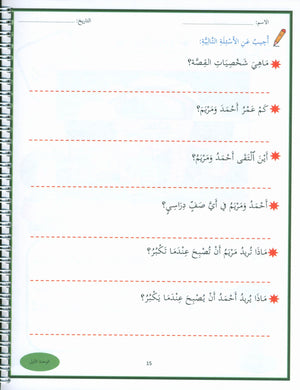 الاسم: التاريخ:
أُجيبُ عَنِ الأَسْئِلَةِ التَّالِيَةِ:
مَاهِيَ شَخْصِيَاتِ القِصَّة؟
كَمْ عُمْرُ أَحْمَدَ وَمَرْيَم؟
أَيْنَ الْتَقَى أَحْمَدُ وَمَرْيَمُ؟
أَحْمَدُ وَمَرْيَمُ فِي أَيِّ صَفٍّ دِرَاسِي؟
مَاذَا تُرِيدُ مَرْيَمُ أَنْ تُصْبِحَ عِنْدَمَا تَكْبُرُ؟
مَاذَا يُرِيدُ أَحْمَدُ أَنْ يُصْبِحَ عِنْدَمَا يَكْبُرُ؟
15
الوحدة الأولى